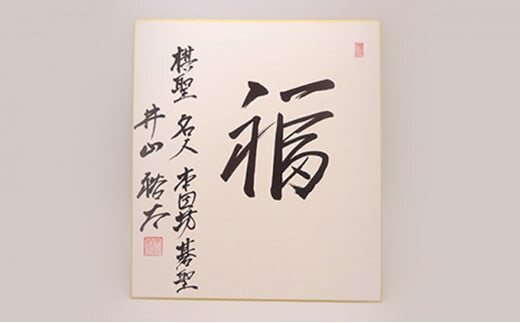 福
棋聖 名人 本因坊 碁聖
井山裕太